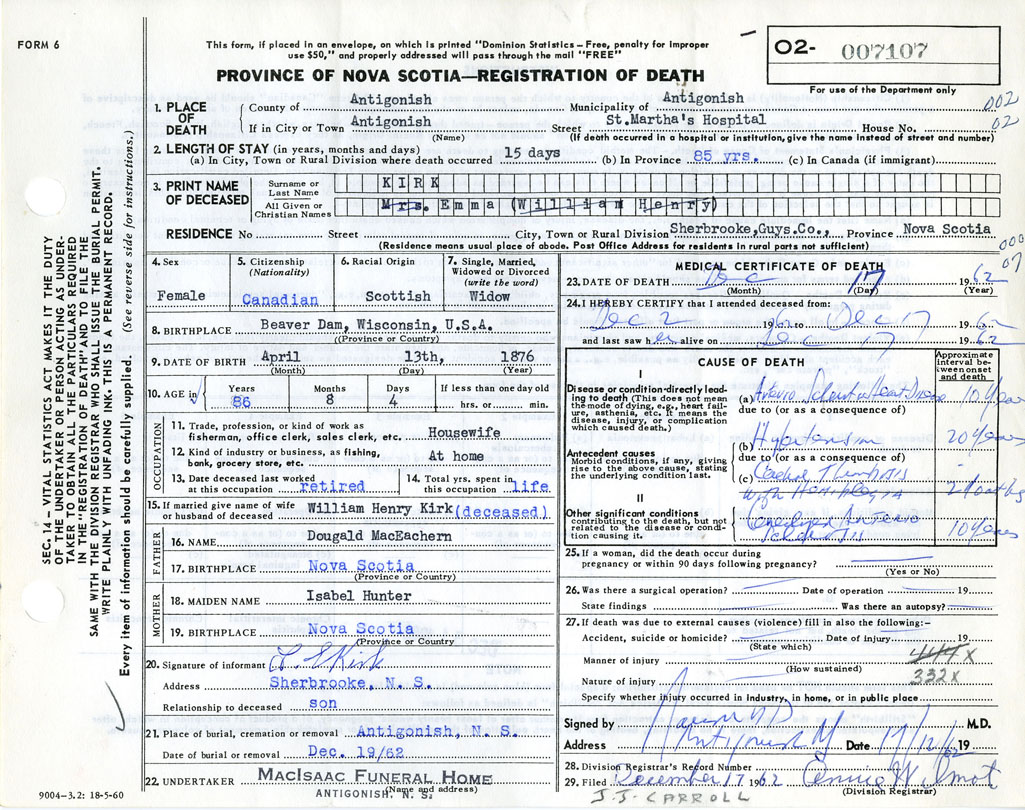 FORM 6
This form, if placed in an envelope, on which is printed "Dominion Statistics – Free, penalty for improper
use $50," and properly addressed will pass through the mail "FREE"
PROVINCE OF NOVA SCOTIA—REGISTRATION OF DEATH
02- 007107
For use of the Department only
002
02
1. PLACE OF DEATH
County of Antigonish Municipality of Antigonish
If in City or Town Antigonish Street St.Martha's Hospital House No.
(Name) (If death occurred in a hospital or institution, give the name instead of street and number)
2. LENGTH OF STAY (in years, months and days)
(a) In City, Town or Rural Division where death occurred 15 days (b) In Province 85 yrs. (c) In Canada (if immigrant)
3. PRINT NAME OF DECEASED
Surname or Last Name KIRK
All Given or Christian Names Mrs. Emma (William Henry)
RESIDENCE No Street City, Town or Rural Division Sherbrooke,Guys.Co., Province Nova Scotia
(Residence means usual place of abode. Post Office Address for residents in rural parts not sufficient)
000
07
4. Sex
Female
5. Citizenship
(Nationality)
Canadian
6. Racial Origin
Scottish
7. Single, Married,
Widowed or Divorced
(write the word)
Widow
8. BIRTHPLACE Beaver Dam, Wisconsin, U.S.A.
(Province or Country)
9. DATE OF BIRTH April 13th, 1876
(Month) (Day) (Year)
10. AGE in
Years Months Days If less than one day old
86 8 4 hrs. or min.
OCCUPATION
11. Trade, profession, or kind of work as
fisherman, office clerk, sales clerk, etc. Housewife
12. Kind of industry or business, as fishing,
bank, grocery store, etc. At home
13. Date deceased last worked
at this occupation retired
14. Total yrs. spent in
this occupation life
15. If married give name of wife
or husband of deceased William Henry Kirk(deceased)
FATHER
16. NAME Dougald MacEachern
17. BIRTHPLACE Nova Scotia
(Province or Country)
MOTHER
18. MAIDEN NAME Isabel Hunter
19. BIRTHPLACE Nova Scotia
(Province or Country
20. Signature of informant Kirk
Address Sherbrooke, N. S.
Relationship to deceased son
21. Place of burial, cremation or removal Antigonish, N. S.
Date of burial or removal Dec. 19/62
22. UNDERTAKER MacIsaac Funeral Home
(Name and address)
ANTIGONISH, N. S.
9004-3.2: 18-5-60
MEDICAL CERTIFICATE OF DEATH
23. DATE OF DEATH Dec 17 1962
(Month) (Day) (Year)
24. I HEREBY CERTIFY that I attended deceased from:
Dec 2 1962 to Dec 17 1962
and last saw her alive on Dec 17 1962
CAUSE OF DEATH
Approximate
interval between onset
and death
I
Disease or condition directly leading to death (This does not mean
the mode of dying, e.g., heart failure, asthenia, etc. It means the
disease, injury, or complication
which caused death.)
(a) Heart Disease 10 Years
due to (or as a consequence of)
(b) Hypertension 20 Years
Antecedent causes
Morbid conditions, if any, giving
rise to the above cause, stating
the underlying condition last.
due to (or as a consequence of)
(c) Cerebral Thrombosis
with Hemiplegia 2 Months
II
Other significant conditions
contributing to the death, but not
related to the disease or condition causing it.
10 Years
25. If a woman, did the death occur during
pregnancy or within 90 days following pregnancy?
(Yes or No)
26. Was there a surgical operation? Date of operation 19
State findings Was there an autopsy?
27. If death was due to external causes (violence) fill in also the following:–
Accident, suicide or homicide? Date of injury 19
(State which)
Manner of injury 444 x
(How sustained)
Nature of injury 332 x
Specify whether injury occurred in industry, in home, or in public place
Signed by M.D.
Address Antigonish Date 17/12/62 19
28. Division Registrar's Record Number
29. Filed December 17 1962 Wilmot
(Division Registrar)
J.J. CARROLL
SEC. 14– VITAL STATISTICS ACT MAKES IT THE DUTY
OF THE UNDERTAKER OR PERSON ACTING AS UNDERTAKER TO OBTAIN ALL THE PARTICULARS REQUIRED
IN THE "REGISTRATION OF DEATH" AND TO FILE THE
SAME WITH THE DIVISION REGISTRAR WHO SHALL ISSUE THE BURIAL PERMIT.
WRITE PLAINLY WITH UNFADING INK. THIS IS A PERMANENT RECORD.
Every item of information should be carefully supplied. (See reverse side for instructions.)